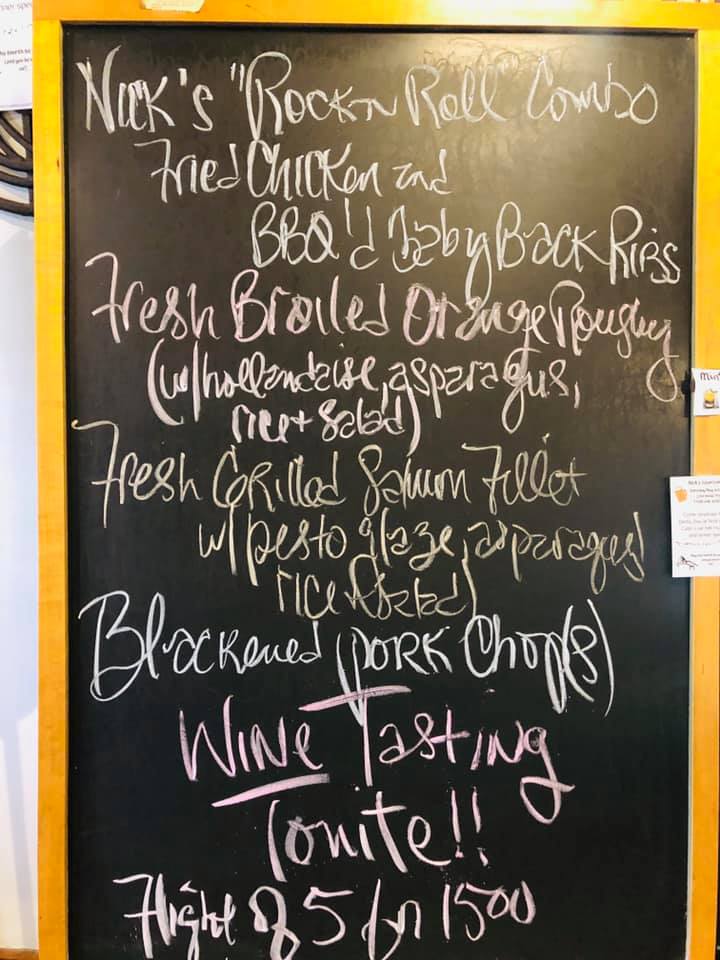 Nick's "Rock n Roll" Combo
Fried Chicken and
BBQ'd Baby Back Ribs
Fresh Broiled Orange Roughy
(w/hollandaise, asparagus,
rice + salad)
Fresh Grilled Salmon Fillet
w/pesto glaze, asparagus,
rice + salad)
Blackened Pork Chop(s)
Wine Tasting
Tonite!!
Flight of 5 for 1500